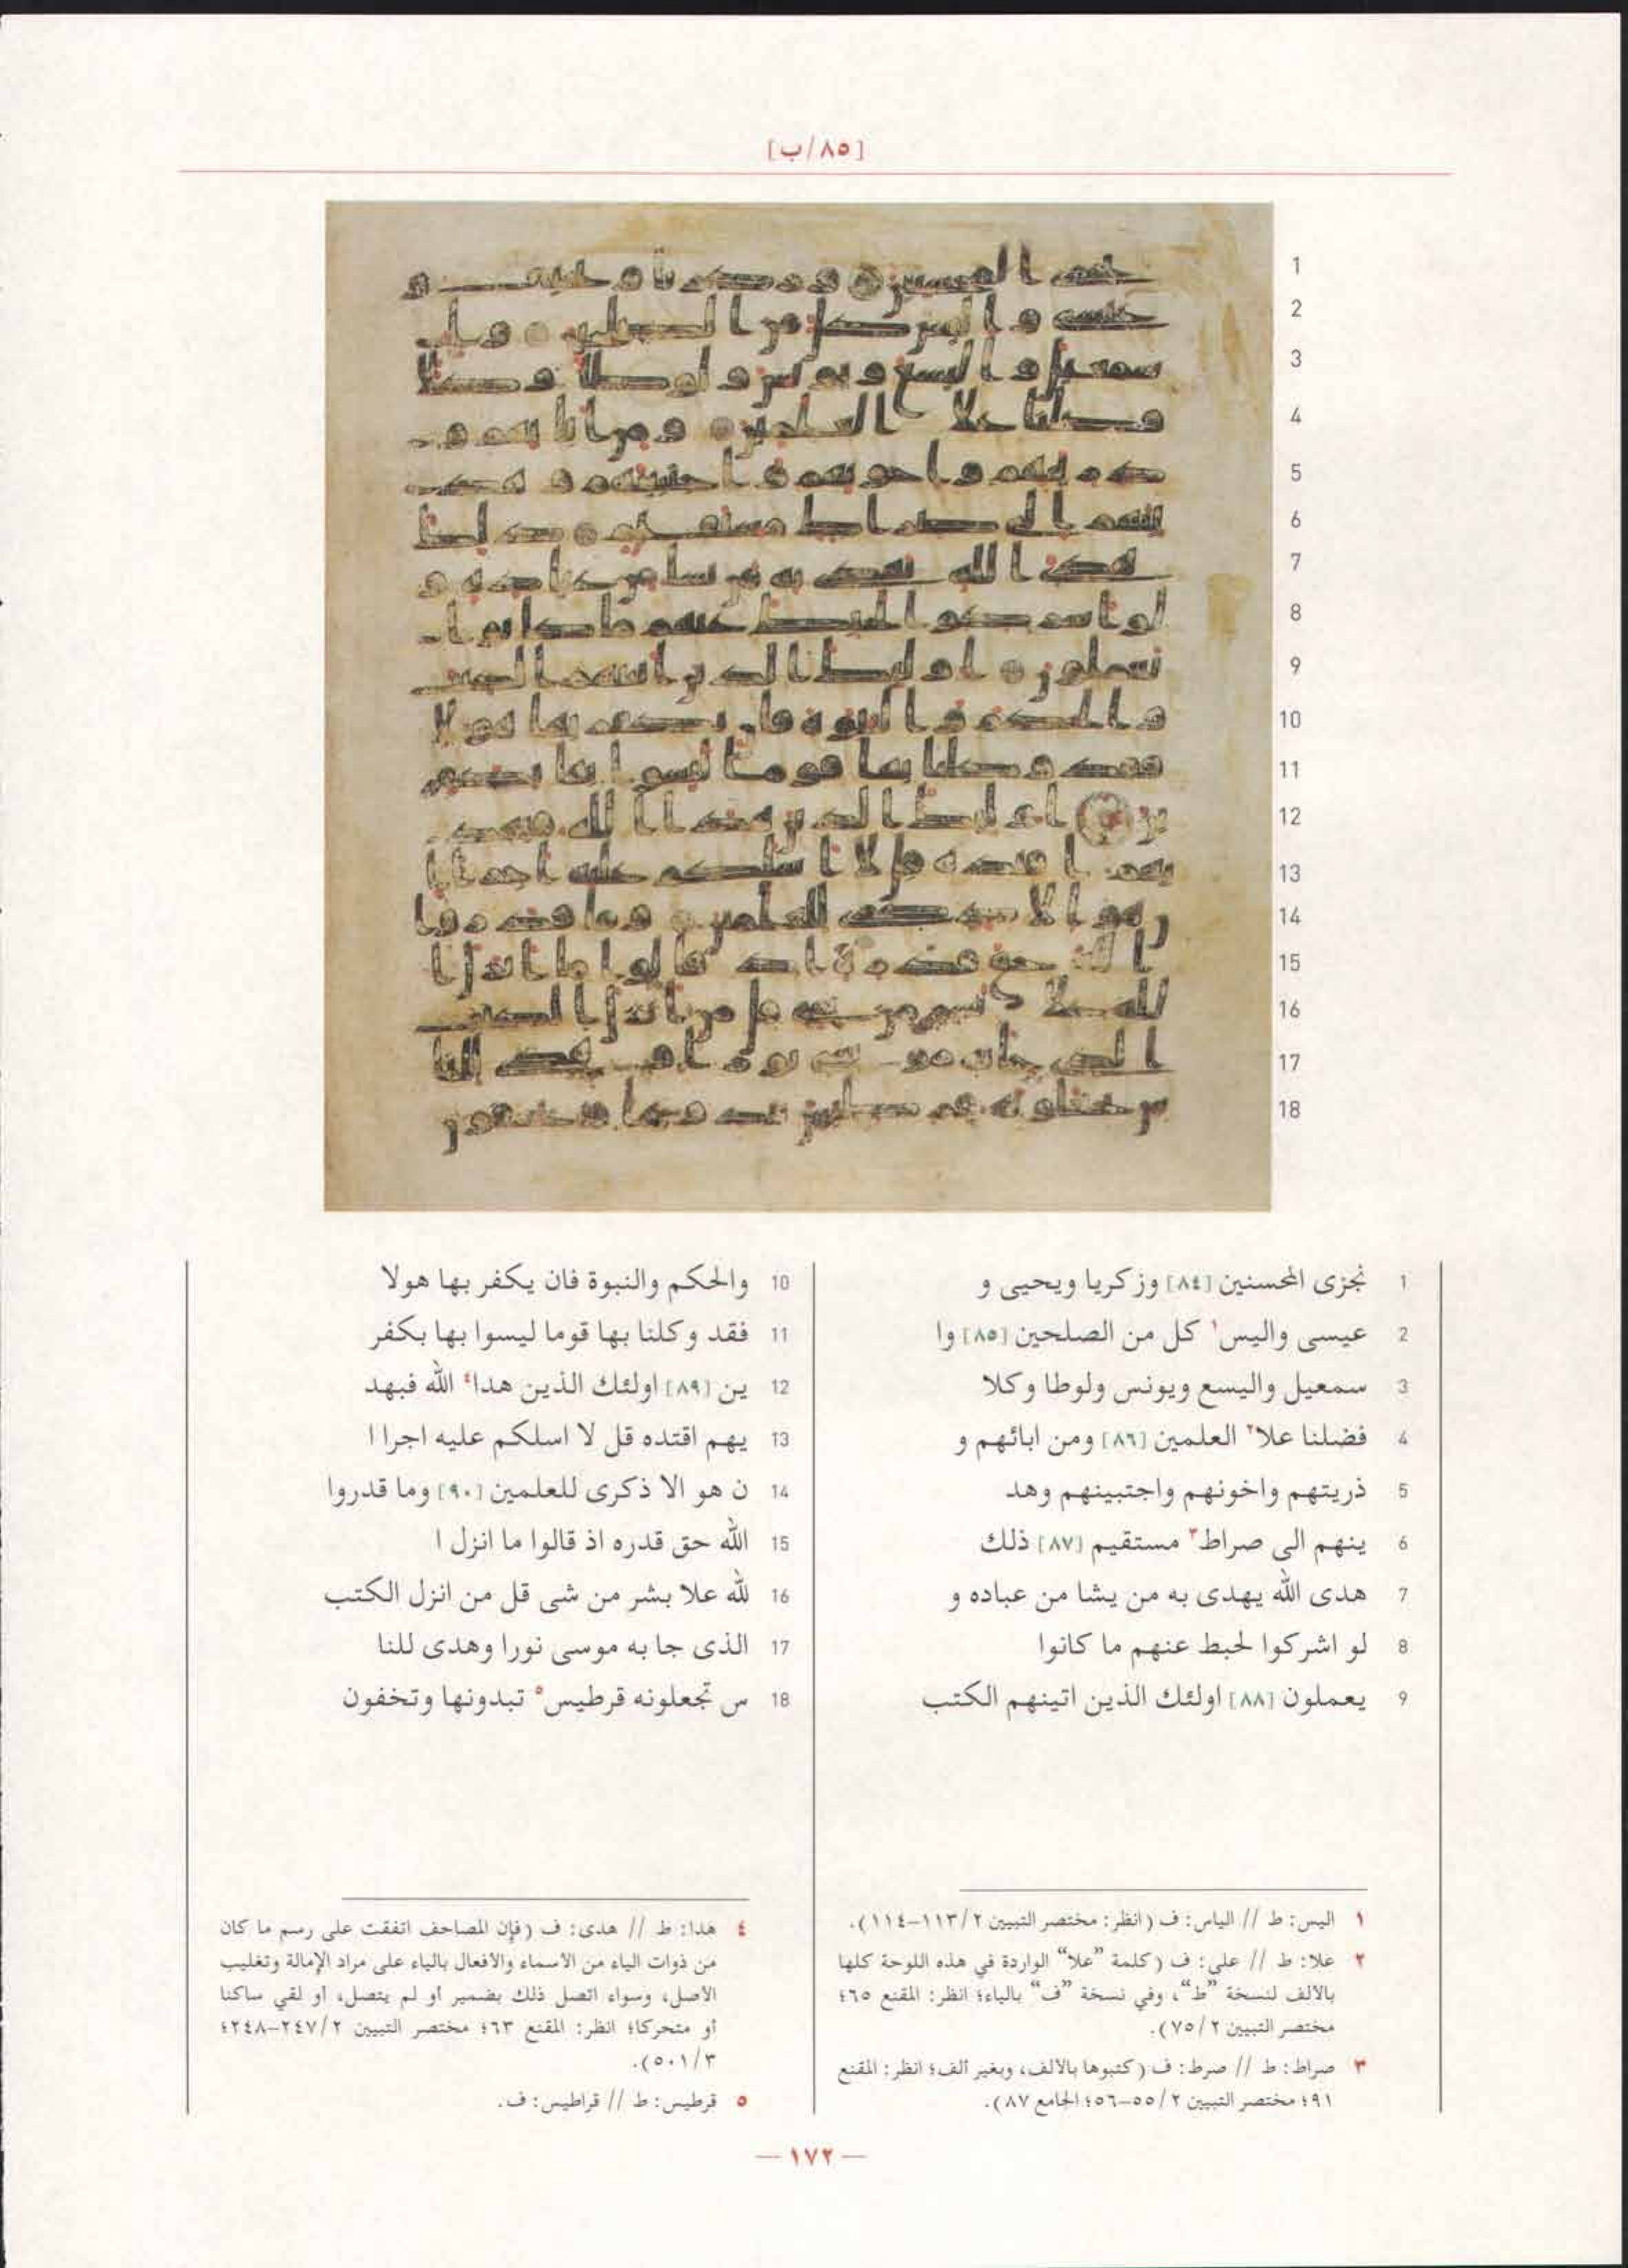 [٨٥/ب]
1 نجزى المحسنين [٨٤] وزكريا ويحيى و
2 عيسى واليس١ كل من الصلحين [٨٥] وا
3 سمعيل واليسع ويونس ولوطا وكلا
4 فضلنا علا٢ العلمين [٨٦] ومن ابائهم و
5 ذريتهم واخونهم واجتبينهم وهد
6 ينهم الى صراط٣ مستقيم [٨٧] ذلك
7 هدى الله يهدى به من يشا من عباده و
8 لو اشركوا لحبط عنهم ما كانوا
9 يعملون [٨٨] اولئك الذين اتينهم الكتب
10 والحكم والنبوة فان يكفر بها هولا
11 فقد وكلنا بها قوما ليسوا بها بكفر
12 ين [٨٩] اولئك الذين هدا٤ الله فبهد
13 يهم اقتده قل لا اسلكم عليه اجرا ا
14 ن هو الا ذكرى للعلمين [٩٠] وما قدروا
15 الله حق قدره اذ قالوا ما انزل ا
16 لله علا بشر من شى قل من انزل الكتب
17 الذى جا به موسى نورا وهدى للنا
18 س تجعلونه قرطيس٥ تبدونها وتخفون
١ اليس: ط // الياس: ف (انظر: مختصر التبيين ٢/١١٣–١١٤).
٢ علا: ط // على: ف (كلمة "علا" الواردة في هذه اللوحة كلها
بالالف لنسخة "ط"، وفي نسخة "ف" بالياء؛ انظر: المقنع ٦٥؛
مختصر التبيين ٢/٧٥).
٣ صراط: ط // صرط: ف (كتبوها بالالف، وبغير ألف؛ انظر: المقنع
٩١؛ مختصر التبيين ٢/٥٥–٥٦؛ الجامع ٨٧).
٤ هدا: ط // هدى: ف (فإن المصاحف اتفقت على رسم ما كان
من ذوات الياء من الأسماء والأفعال بالياء على مراد الإمالة وتغليب
الأصل، وسواء اتصل ذلك بضمير أو لم يتصل، أو لقي ساكنا
أو متحركا؛ انظر: المقنع ٦٣؛ مختصر التبيين ٢/٢٤٧–٢٤٨؛
٣/٥٠١).
٥ قرطيس: ط // قراطيس: ف.
— ١٧٢ —